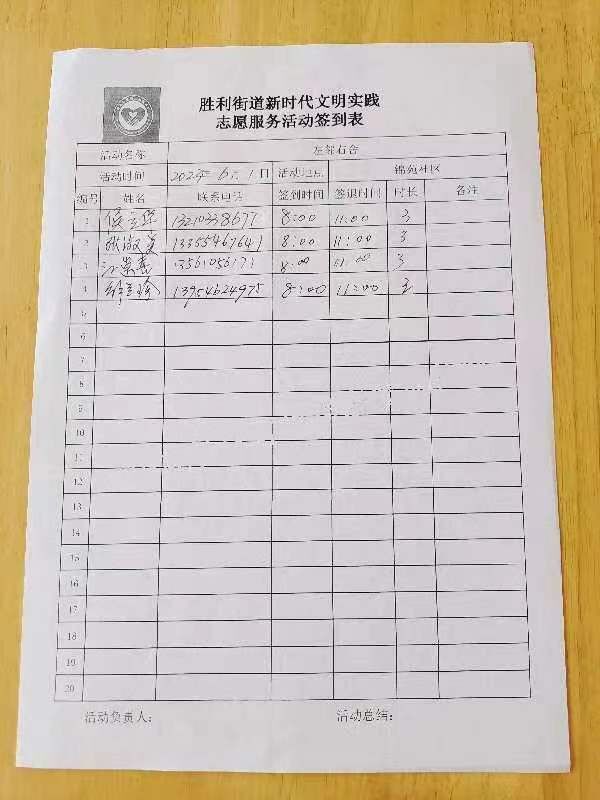 胜利街道新时代文明实践
志愿服务活动签到表
活动名称 左邻右舍
活动时间 2024. 6. 1日 活动地点 锦苑社区
编号 姓名 联系电话 签到时间 签退时间 时长 备注
1 13210338671 8:00 11:00 3
2 13355467641 8:00 11:00 3
3 13561056171 8:00 11:00 3
4 13954624975 8:00 11:00 3
5
6
7
8
9
10
11
12
13
14
15
16
17
18
19
20
活动负责人: 活动总结: